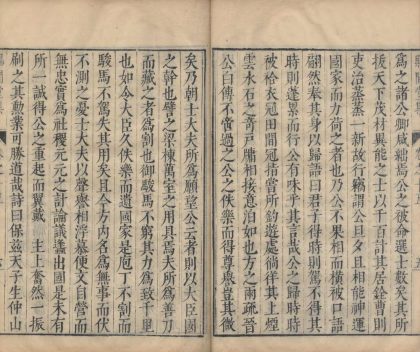 爲之諸公卿咸爲公之選士數矣其
援天下茂材異能之士以千百計其居銓曹則
吏治蒸蒸一新故行謂公且夕且相能神運
國家而力荷之者也乃公不果相而橫被口語
翩然奉其身以歸語曰君子得時則駕不得其
時則蓬累而行公有味乎其言哉公之歸時時
被袷衣冠田間冠指嘗所釣遊處徜徉其上煙
雲水石之奇戶牖相接意泊如也方之兩疏晉
公白傅不啻過之公之佚樂而得尊譽豈其微
矣乃朝士大夫所爲願望公云者則以大臣國
之幹也譬之梁棟萬室之用具焉夫所爲善刀
而藏之者爲割也御駿馬不窮其力爲致千里
也如令大臣久佚樂而遺國家是庖丁不割而
駿馬不駕矣其用矣且今方內名爲無事而伏
不測之憂士大夫以聲應相浮慕便文自營而
無忠實爲社稷元元之計論議出國是未有
所一誠得公之重起而翼戴主上奮然一振
刷之其勲業可勝道哉詩曰保茲天子生仲山